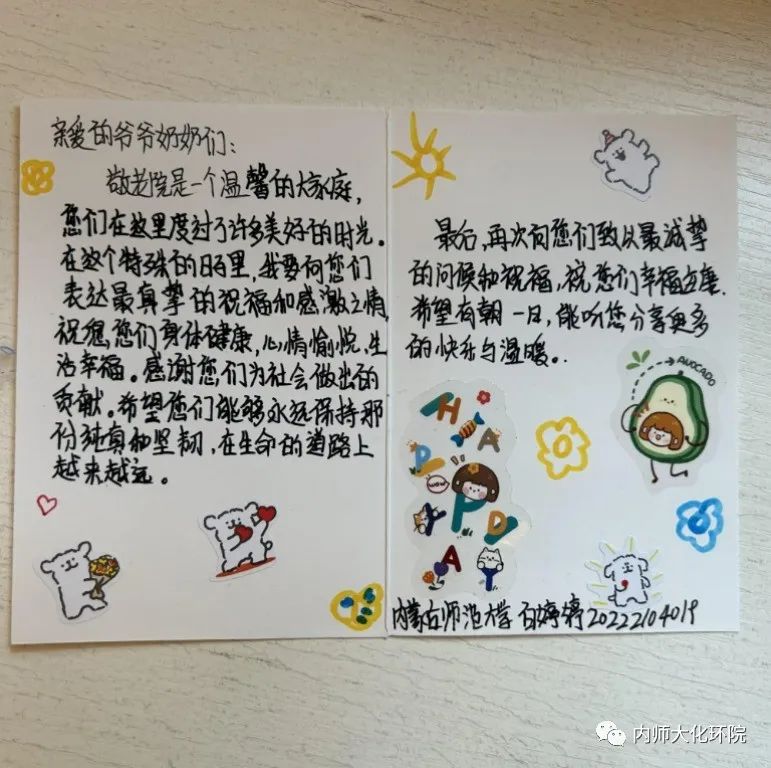 亲爱的爷爷奶奶们：
敬老院是一个温馨的大家庭，
您们在这里度过了许多美好的时光。
在这个特殊的日子里，我要向您们
表达最真挚的祝福和感激之情，
祝愿您们身体健康，心情愉悦，生
活幸福。感谢您们为社会做出的
贡献。希望您们能够永远保持那
份纯真和坚韧，在生命的道路上
越来越远。
最后，再次向您们致以最诚挚
的问候和祝福，祝您们幸福安康.
希望有朝一日，能听您分享更多
的快乐与温暖。.
AVOCADO
HAPPY DAY
WOW
内蒙古师范大学 石婷婷 20222104019
内师大化环院